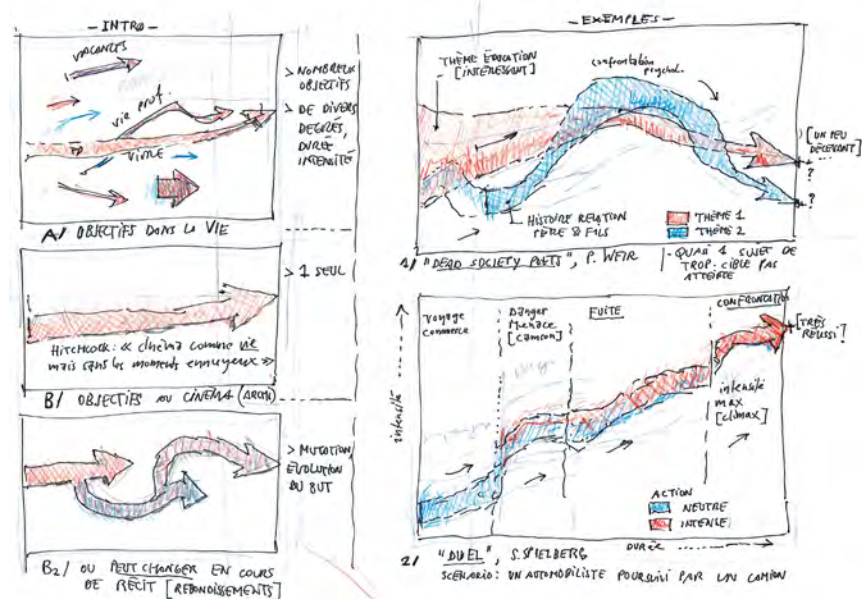 - INTRO -
VACANCES
vie prof.
VIRTLE
> NOMBREUX
OBJECTIFS
> DE DIVERS
DEGRÉS,
DURÉE,
INTENSITÉ
A/ OBJECTIFS DANS LA VIE
> 1 SEUL
HITCHCOCK: « cinéma comme vie
mais sans les moments ennuyeux »
B/ OBJECTIFS AU CINÉMA (ARCHI)
> MUTATION,
EVOLUTION
DU BUT
B2/ OU PEUT CHANGER EN COURS
DE RÉCIT [REBONDISSEMENTS]
- EXEMPLES -
THÈME ÉDUCATION
[INTÉRESSANT]
confrontation
psychol.
[UN PEU
DÉCEVANT]
?
?
HISTOIRE RELATION
PÈRE & FILS
THÈME 1
THÈME 2
1/ "DEAD SOCIETY POETS", P. WEIR
- QUASI 1 SUJET DE
TROP: CIBLE PAS
ATTEINTE
intensité
Voyage
commerce
Danger
Menace
[camion]
FUITE
CONFRONTATION
[TRÈS
RÉUSSI]
intensité
max
[climax]
ACTION
NEUTRE
INTENSE
DURÉE
2/ "DUEL", S. SPIELBERG
SCENARIO: UN AUTOMOBILISTE POURSUIVI PAR UN CAMION